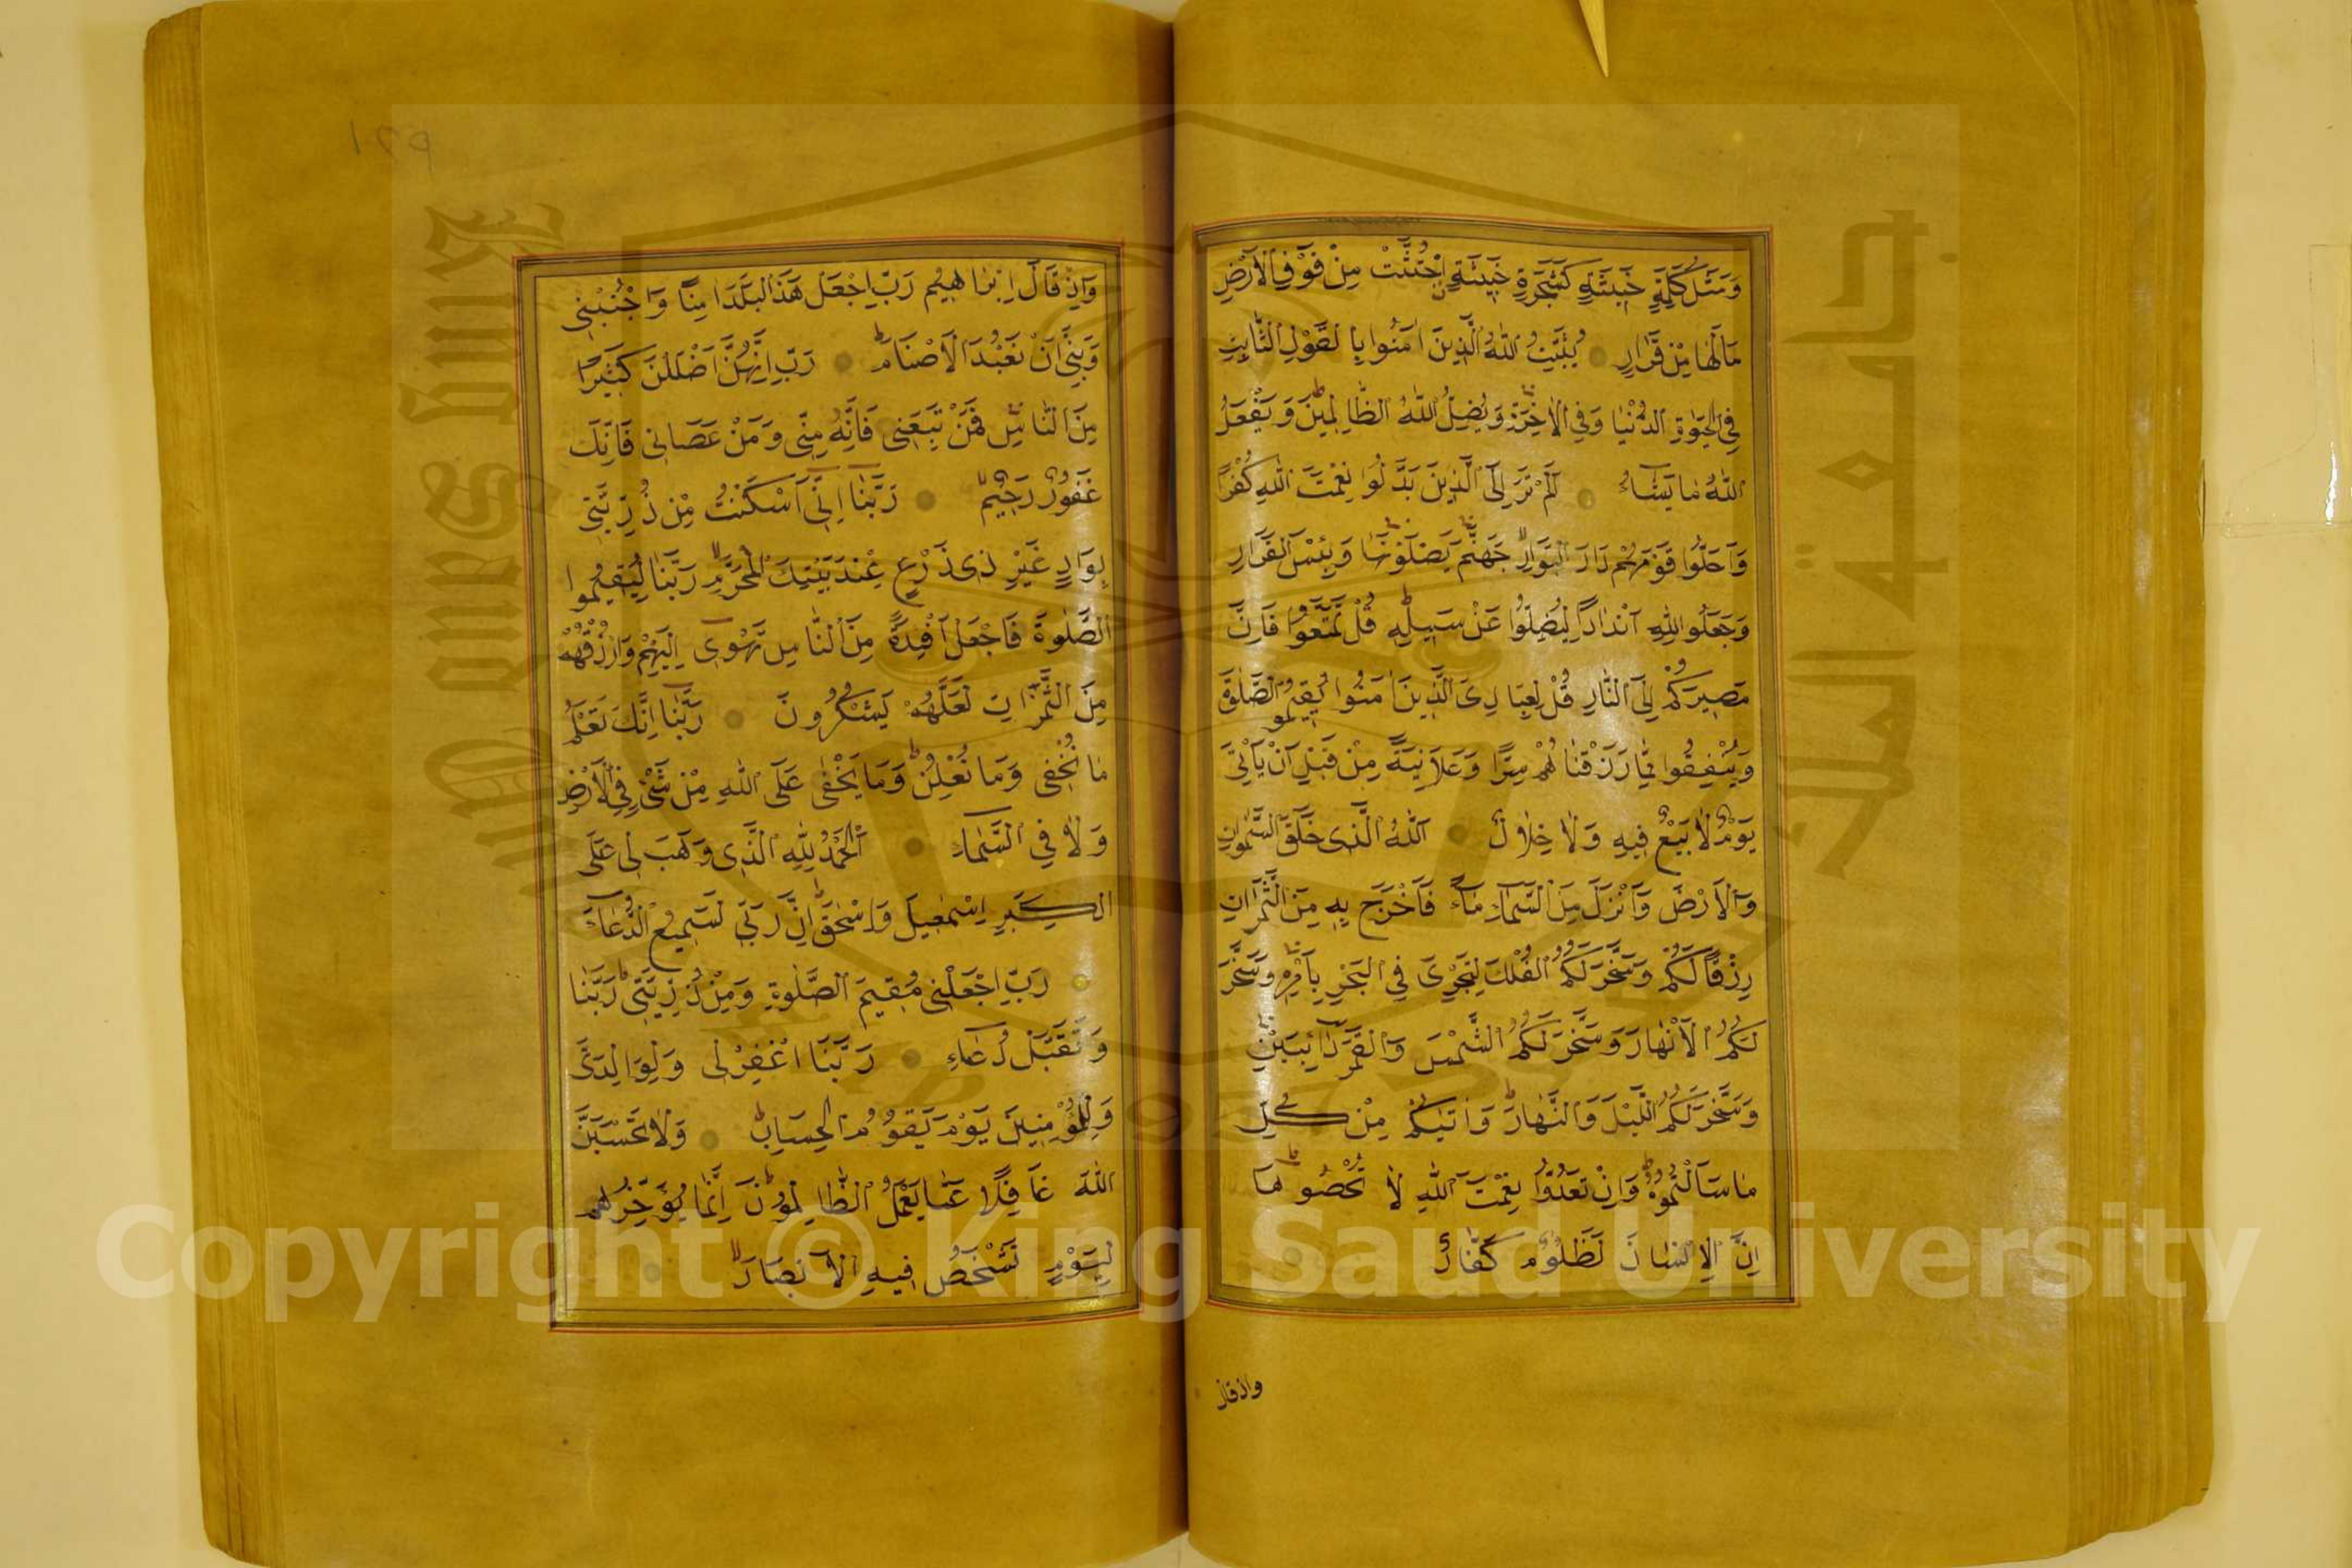 وَمَثَلُ كَلِمَةٍ خَبِيثَةٍ كَشَجَرَةٍ خَبِيثَةٍ اجْتُثَّتْ مِنْ فَوْقِ الْاَرْضِ
مَا لَهَا مِنْ قَرَارٍ يُثَبِّتُ اللّٰهُ الَّذِينَ اٰمَنُوا بِالْقَوْلِ الثَّابِتِ
فِي الْحَيٰوةِ الدُّنْيَا وَفِي الْاٰخِرَةِ وَيُضِلُّ اللّٰهُ الظَّالِمِينَ وَيَفْعَلُ
اللّٰهُ مَا يَشَاءُ اَلَمْ تَرَ اِلَى الَّذِينَ بَدَّلُوا نِعْمَتَ اللّٰهِ كُفْرًا
وَاَحَلُّوا قَوْمَهُمْ دَارَ الْبَوَارِ جَهَنَّمَ يَصْلَوْنَهَا وَبِئْسَ الْقَرَارُ
وَجَعَلُوا لِلّٰهِ اَنْدَادًا لِيُضِلُّوا عَنْ سَبِيلِهِ قُلْ تَمَتَّعُوا فَاِنَّ
مَصِيرَكُمْ اِلَى النَّارِ قُلْ لِعِبَادِيَ الَّذِينَ اٰمَنُوا يُقِيمُوا الصَّلٰوةَ
وَيُنْفِقُوا مِمَّا رَزَقْنَاهُمْ سِرًّا وَعَلَانِيَةً مِنْ قَبْلِ اَنْ يَاْتِيَ
يَوْمٌ لَا بَيْعٌ فِيهِ وَلَا خِلَالٌ اَللّٰهُ الَّذِي خَلَقَ السَّمٰوَاتِ
وَالْاَرْضَ وَاَنْزَلَ مِنَ السَّمَاءِ مَاءً فَاَخْرَجَ بِهِ مِنَ الثَّمَرَاتِ
رِزْقًا لَكُمْ وَسَخَّرَ لَكُمُ الْفُلْكَ لِتَجْرِيَ فِي الْبَحْرِ بِاَمْرِهِ وَسَخَّرَ
لَكُمُ الْاَنْهَارَ وَسَخَّرَ لَكُمُ الشَّمْسَ وَالْقَمَرَ دَائِبَيْنِ
وَسَخَّرَ لَكُمُ اللَّيْلَ وَالنَّهَارَ وَاٰتٰيكُمْ مِنْ كُلِّ
مَا سَاَلْتُمُوهُ وَاِنْ تَعُدُّوا نِعْمَتَ اللّٰهِ لَا تُحْصُوهَا
اِنَّ الْاِنْسَانَ لَظَلُومٌ كَفَّارٌ
واذ قال
وَاِذْ قَالَ اِبْرَاهِيمُ رَبِّ اجْعَلْ هٰذَا الْبَلَدَ اٰمِنًا وَاجْنُبْنِي
وَبَنِيَّ اَنْ نَعْبُدَ الْاَصْنَامَ رَبِّ اِنَّهُنَّ اَضْلَلْنَ كَثِيرًا
مِنَ النَّاسِ فَمَنْ تَبِعَنِي فَاِنَّهُ مِنِّي وَمَنْ عَصَانِي فَاِنَّكَ
غَفُورٌ رَحِيمٌ رَبَّنَا اِنِّي اَسْكَنْتُ مِنْ ذُرِّيَّتِي
بِوَادٍ غَيْرِ ذِي زَرْعٍ عِنْدَ بَيْتِكَ الْمُحَرَّمِ رَبَّنَا لِيُقِيمُوا
الصَّلٰوةَ فَاجْعَلْ اَفْئِدَةً مِنَ النَّاسِ تَهْوِي اِلَيْهِمْ وَارْزُقْهُمْ
مِنَ الثَّمَرَاتِ لَعَلَّهُمْ يَشْكُرُونَ رَبَّنَا اِنَّكَ تَعْلَمُ
مَا نُخْفِي وَمَا نُعْلِنُ وَمَا يَخْفٰى عَلَى اللّٰهِ مِنْ شَيْءٍ فِي الْاَرْضِ
وَلَا فِي السَّمَاءِ اَلْحَمْدُ لِلّٰهِ الَّذِي وَهَبَ لِي عَلَى
الْكِبَرِ اِسْمٰعِيلَ وَاِسْحٰقَ اِنَّ رَبِّي لَسَمِيعُ الدُّعَاءِ
رَبِّ اجْعَلْنِي مُقِيمَ الصَّلٰوةِ وَمِنْ ذُرِّيَّتِي رَبَّنَا
وَتَقَبَّلْ دُعَاءِ رَبَّنَا اغْفِرْ لِي وَلِوَالِدَيَّ
وَلِلْمُؤْمِنِينَ يَوْمَ يَقُومُ الْحِسَابُ وَلَا تَحْسَبَنَّ
اللّٰهَ غَافِلًا عَمَّا يَعْمَلُ الظَّالِمُونَ اِنَّمَا يُؤَخِّرُهُمْ
لِيَوْمٍ تَشْخَصُ فِيهِ الْاَبْصَارُ
King Saud University
جامعة الملك سعود
1957
Copyright © King Saud University